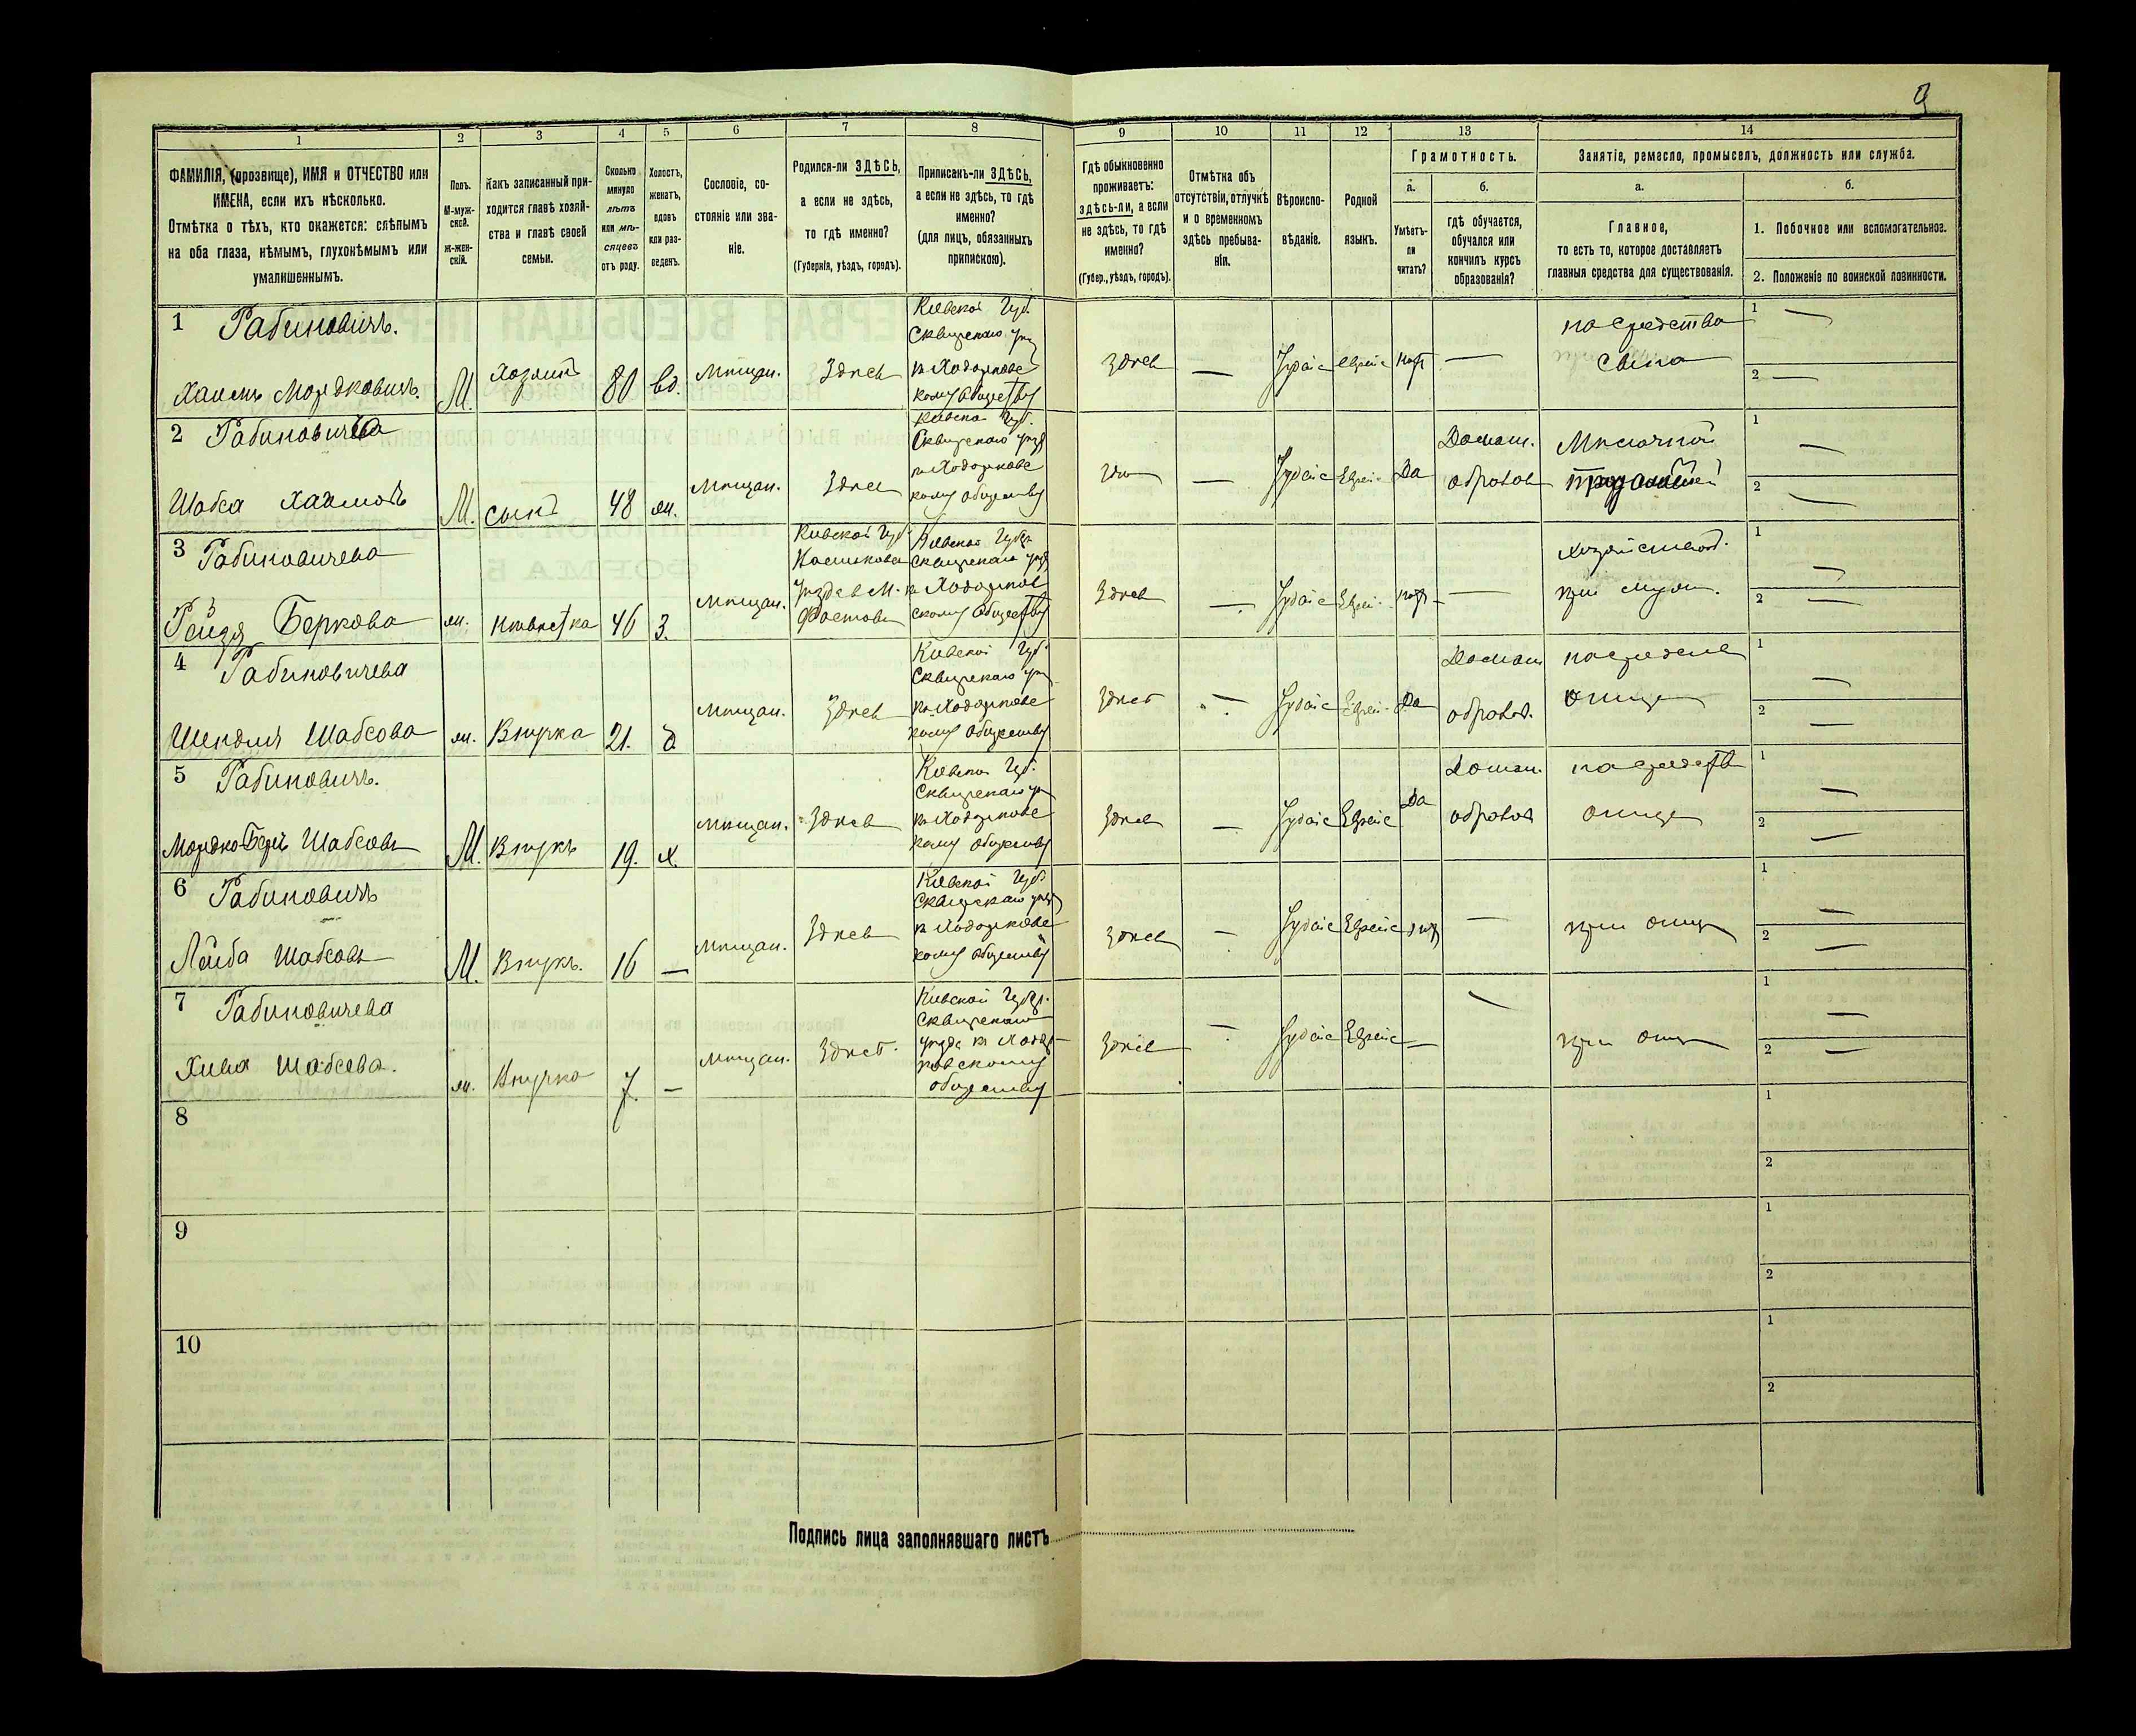 9
1 2 3 4 5 6 7 8 9 10 11 12 13 14
ФАМИЛІЯ, (прозвище), ИМЯ и ОТЧЕСТВО или ИМЕНА, если ихъ нѣсколько.
Отмѣтка о тѣхъ, кто окажется: слѣпымъ на оба глаза, нѣмымъ, глухонѣмымъ или умалишеннымъ.
Полъ.
М-мужской.
Ж-женскій.
Какъ записанный приходится главѣ хозяйства и главѣ своей семьи.
Сколько минуло лѣтъ или мѣсяцевъ отъ роду.
Холостъ, женатъ, вдовъ или разведенъ.
Сословіе, состояніе или званіе.
Родился-ли ЗДѢСЬ, а если не здѣсь, то гдѣ именно?
(Губернія, уѣздъ, городъ).
Приписанъ-ли ЗДѢСЬ, а если не здѣсь, то гдѣ именно?
(для лицъ, обязанныхъ припискою).
Гдѣ обыкновенно проживаетъ: здѣсь-ли, а если не здѣсь, то гдѣ именно?
(Губер., уѣздъ, городъ).
Отмѣтка объ отсутствіи, отлучкѣ и о временномъ здѣсь пребываніи.
Вѣроисповѣданіе.
Родной языкъ.
Грамотность.
а.
Умѣетъ-ли читать?
б.
гдѣ обучается, обучался или кончилъ курсъ образованія?
Занятіе, ремесло, промыселъ, должность или служба.
а.
Главное,
то есть то, которое доставляетъ главныя средства для существованія.
б.
1. Побочное или вспомогательное.
2. Положеніе по воинской повинности.
1 Рабиновичъ.
Хаимъ Мордковичъ. М. хозяинъ 80 вд. мѣщан. Здѣсь
Кіевской Губ.
Сквирскаго
къ Ходорковс
кому обществу
Здѣсь — Іудаіс Еврейс — сына — 1 — 2 —
2 Рабиновичъ
Шабса Хаимовъ М. сынъ 48 ж. мѣщан. Здѣсь
Кіевско Губ.
Сквирскаго
къ Ходорковс
кому обществу
— Іудаіс Еврей. Да Домаш. образов 1 — 2 —
3 Рабиновичева
Рейзя Беркова ж. невѣстка 46 З. мѣщан.
Кіевской Губ
М.
Фастовъ
Кіевской Губер
Сквирскаго
къ Ходорков
скому обществу
Здѣсь — Іудаіс Еврей. — при муж. 1 — 2 —
4 Рабиновичева
Шендля Шабсова ж. Внучка 21. д. мѣщан. Здѣсь
Кіевской Губ.
Сквирскаго
къ Ходорковс
кому обществу
Здѣсь — Іудаіс Еврей. Да Домаш образов. отца 1 — 2 —
5 Рабиновичъ.
Мордко-Беръ Шабсовъ М. Внукъ 19. х. мѣщан. Здѣсь
Кіевско Губ.
Сквирскаго
къ Ходорковс
кому обществу
Здѣсь — Іудаіс Еврейс Да Домаш. образов отца 1 — 2 —
6 Рабиновичъ
Лейба Шабсовъ М. Внукъ. 16 — мѣщан. Здѣсь
Кіевской Губ
Сквирскаго
къ Ходорковс
кому обществу
Здѣсь — Іудаіс Еврейс — при отцѣ 1 — 2 —
7 Рабиновичева
Хива Шабсова. ж. Внучка 7. — мѣщан. Здѣсь.
Кіевской Губер.
Сквирскаго
уѣзда къ Ходор
ковскому
обществу
Здѣсь — Іудаіс Еврейс — — при отцѣ 1 — 2 —
8 1 2
9 1 2
10 1 2
Подпись лица заполнявшаго листъ